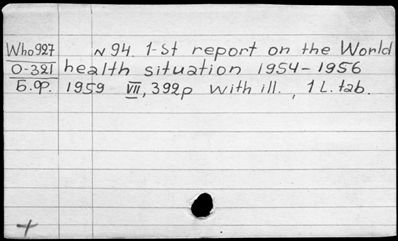 Who927 N 94. 1-st report on the World
0-321 health situation 1954-1956
Б.ф. 1959 VII, 392p with ill., 1 L. tab.
+